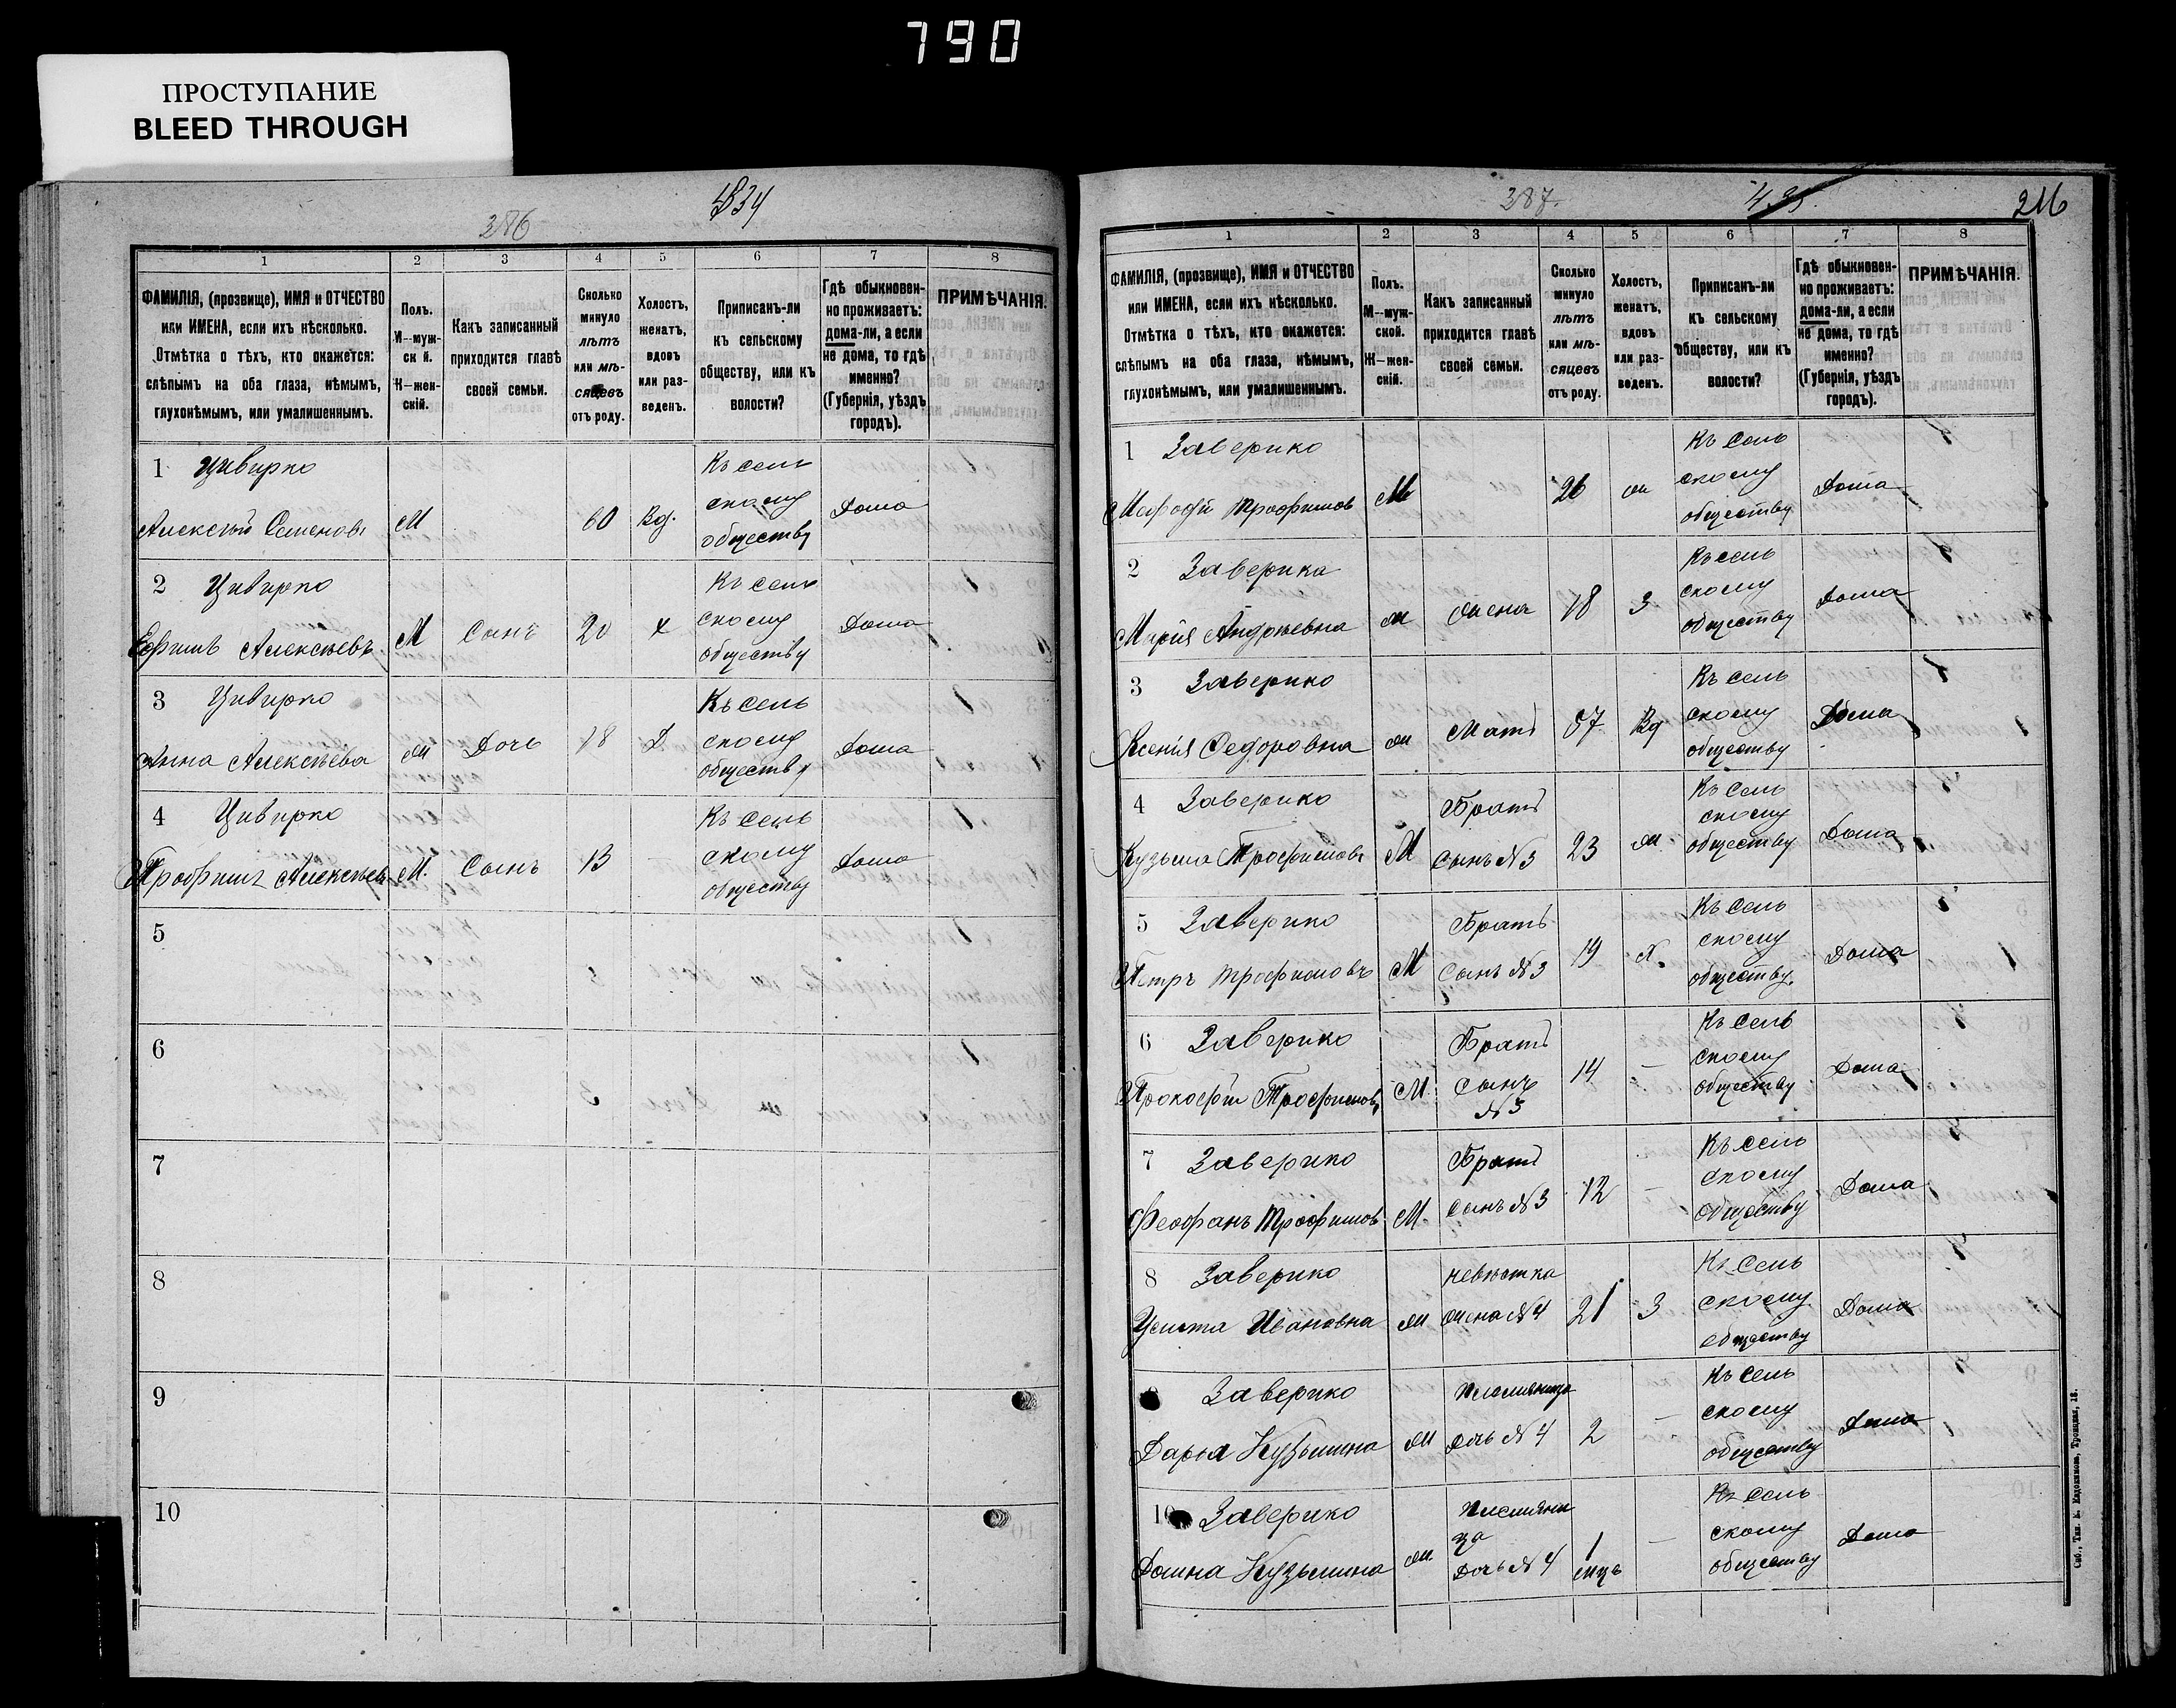 790
ПРОСТУПАНИЕ
BLEED THROUGH
386
434
1 2 3 4 5 6 7 8
ФАМИЛІЯ, (прозвище), ИМЯ и ОТЧЕСТВО
или ИМЕНА, если ихъ нѣсколько.
Отмѣтка о тѣхъ, кто окажется:
слѣпымъ на оба глаза, нѣмымъ,
глухонѣмымъ, или умалишеннымъ.
Полъ.
М—муж-
ской.
Ж—жен-
скій.
Какъ записанный
приходится главѣ
своей семьи.
Сколько
минуло
лѣтъ
или мѣ-
сяцевъ
отъ роду.
Холостъ,
женатъ,
вдовъ
или раз-
веденъ.
Приписанъ-ли
къ сельскому
обществу, или къ
волости?
Гдѣ обыкновен-
но проживаетъ:
дома-ли, а если
не дома, то гдѣ
именно?
(Губернія, уѣздъ
городъ).
ПРИМѢЧАНІЯ.
1 Цивирко Къ сель
скому
Алексѣй Семеновъ М 60 Вд. обществу Дома
2 Цивирко Къ сель
скому
Ефимъ Алексѣевъ М Сынъ 20 х обществу Дома
3 Цивирко Къ сель
скому
Анна Алексѣева ж Дочь 18 Д обществу Дома
4 Цивирко Къ сель
скому
Трофимъ Алексѣевъ М. Сынъ 13 обществу Дома
5
6
7
8
9
10
387.
435.
216
1 2 3 4 5 6 7 8
ФАМИЛІЯ, (прозвище), ИМЯ и ОТЧЕСТВО
или ИМЕНА, если ихъ нѣсколько.
Отмѣтка о тѣхъ, кто окажется:
слѣпымъ на оба глаза, нѣмымъ,
глухонѣмымъ, или умалишеннымъ.
Полъ.
М—муж-
ской.
Ж—жен-
скій.
Какъ записанный
приходится главѣ
своей семьи.
Сколько
минуло
лѣтъ
или мѣ-
сяцевъ
отъ роду.
Холостъ,
женатъ,
вдовъ
или раз-
веденъ.
Приписанъ-ли
къ сельскому
обществу, или къ
волости?
Гдѣ обыкновен-
но проживаетъ:
дома-ли, а если
не дома, то гдѣ
именно?
(Губернія, уѣздъ
городъ).
ПРИМѢЧАНІЯ.
1 Заверико Къ сель
скому
Трофимов М 26 ж обществу Дома
2 Заверика Къ сель
скому
Марія Андреевна ж жена 18 З обществу Дома
3 Заверико Къ сель
скому
Ксенія Федоровна ж Мать 57 Вд обществу Дома
4 Заверико Братъ Къ сель
скому
Кузьма Трофимовъ М сынъ №3 23 ж обществу Дома
5 Заверико Братъ Къ сель
скому
Петръ Трофимовъ М сынъ №3 19 х. обществу. Дома
6 Заверико Братъ Къ сель
скому
Прокофій Трофимовъ М. сынъ 14 — обществу Дома
№3
7 Заверико Братъ Къ сель
скому
Феофанъ Трофимов М. сынъ №3 12 — обществу Дома
8 Заверико невѣстка Къ сель
скому
Ивановна ж жена №4 21 З обществу Дома
9 Заверико Племянница Къ сель
скому
Дарья Кузьмина ж дочь №4 2 — обществу Дома
10 Заверико Племянни Къ сель
ца скому
Домна Кузьмина ж. дочь №4 1 — обществу Дома
мцъ
Спб., Тип. Е. Евдокимова, Троицкая, 18.